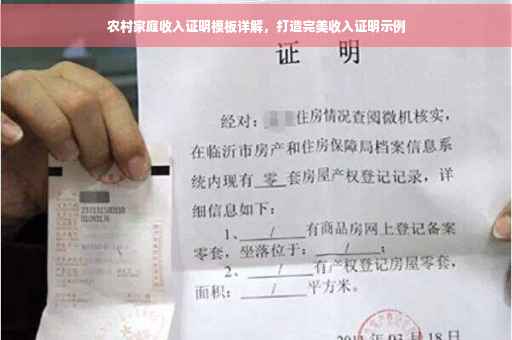 农村家庭收入证明模板详解，打造完美收入证明示例
证 明
经对：住房情况查阅微机核实，
在临沂市房产和住房保障局档案信息系
统内现有 零 套房屋产权登记记录，详
细信息如下：
1、 / 有商品房网上登记备案
零套，坐落位于： / ；
2、 / 有产权登记房屋零套，
面积： / 平方米。